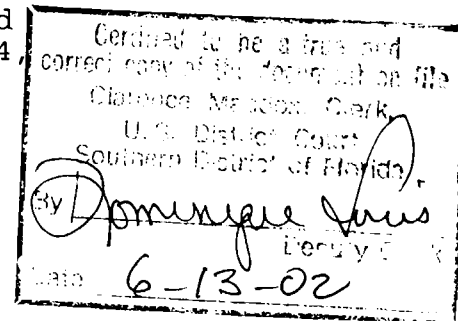 d
4,
Certified to be a true and
correct copy of the document on file
Clarence Maddox, Clerk
U. S. District Court
Southern District of Florida
By Dominique
Deputy
Date 6-13-02